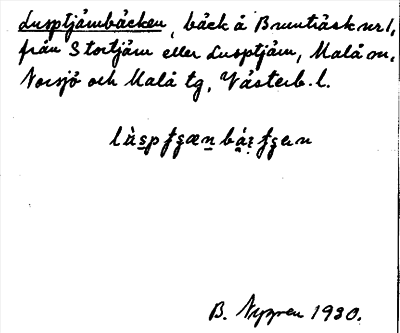 Lusptjärnbäcken, bäck å Bruntråsk nr 1,
från Stortjärn eller Lusptjärn, Malå sn,
Norsjö och Malå tg, Västerb. l.
B. Nygren 1930.